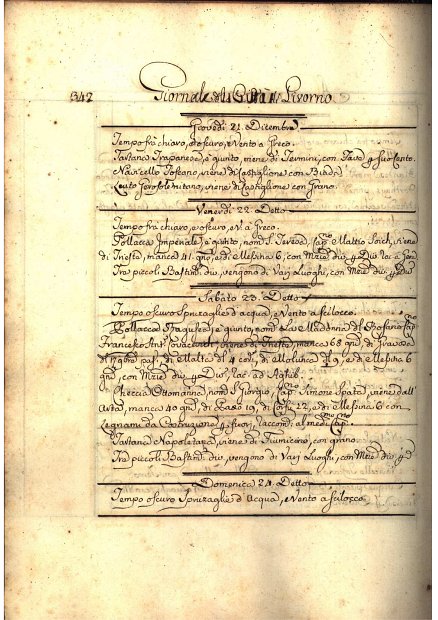 342 Giornale di Livorno
Giovedì 21. Dicembre
Tempo frà chiaro, e oscuro, e Vento a Greco.
Tartana Trapanese, è quinto, viene di Termini, con
Navicello Toscano, viene di Castiglione con Biade
Leuto Gerosolemitano, viene di Castiglione con Grano.
Venerdì 22. Detto
Tempo frà chiaro, e oscuro, e V. a Greco.
Pollacca Imperiale, è quinto, nom. S. Teresa, Cap.no Mattio viene
di Trieste, manca 41. gni, e di Messina 6, con
Tre piccoli Bastim. div. vengono di Varj Luoghi, con Merc. div.
Sabato 23. Detto
Tempo oscuro Spruzaglie d'acqua, e Vento a Scilocco.
Pollacca Ragusea, è quinto, nom. La Madonna del Rosario, Cap.
Francesco Ant. viene di Trieste, manca 68 gni, di
di Malta di 4 col. e di Messina 6
gni, con Merc. div.
Checcia Ottomanna, nom. S. Giorgio, Cap.no Simone Spata, viene dall'
Arta, manca 40 gni, di 19, di Corfù 22, e di Messina 6 con
Legnami da Costruzione
Tartana Napoletana, viene di Fiumicino, con grano.
Tre piccoli Bastim. div. vengono di Varj Luoghi, con Merc. div.
Domenica 24. Detto
Tempo oscuro Spruzaglie d'Acqua, e Vento a Scilocco.